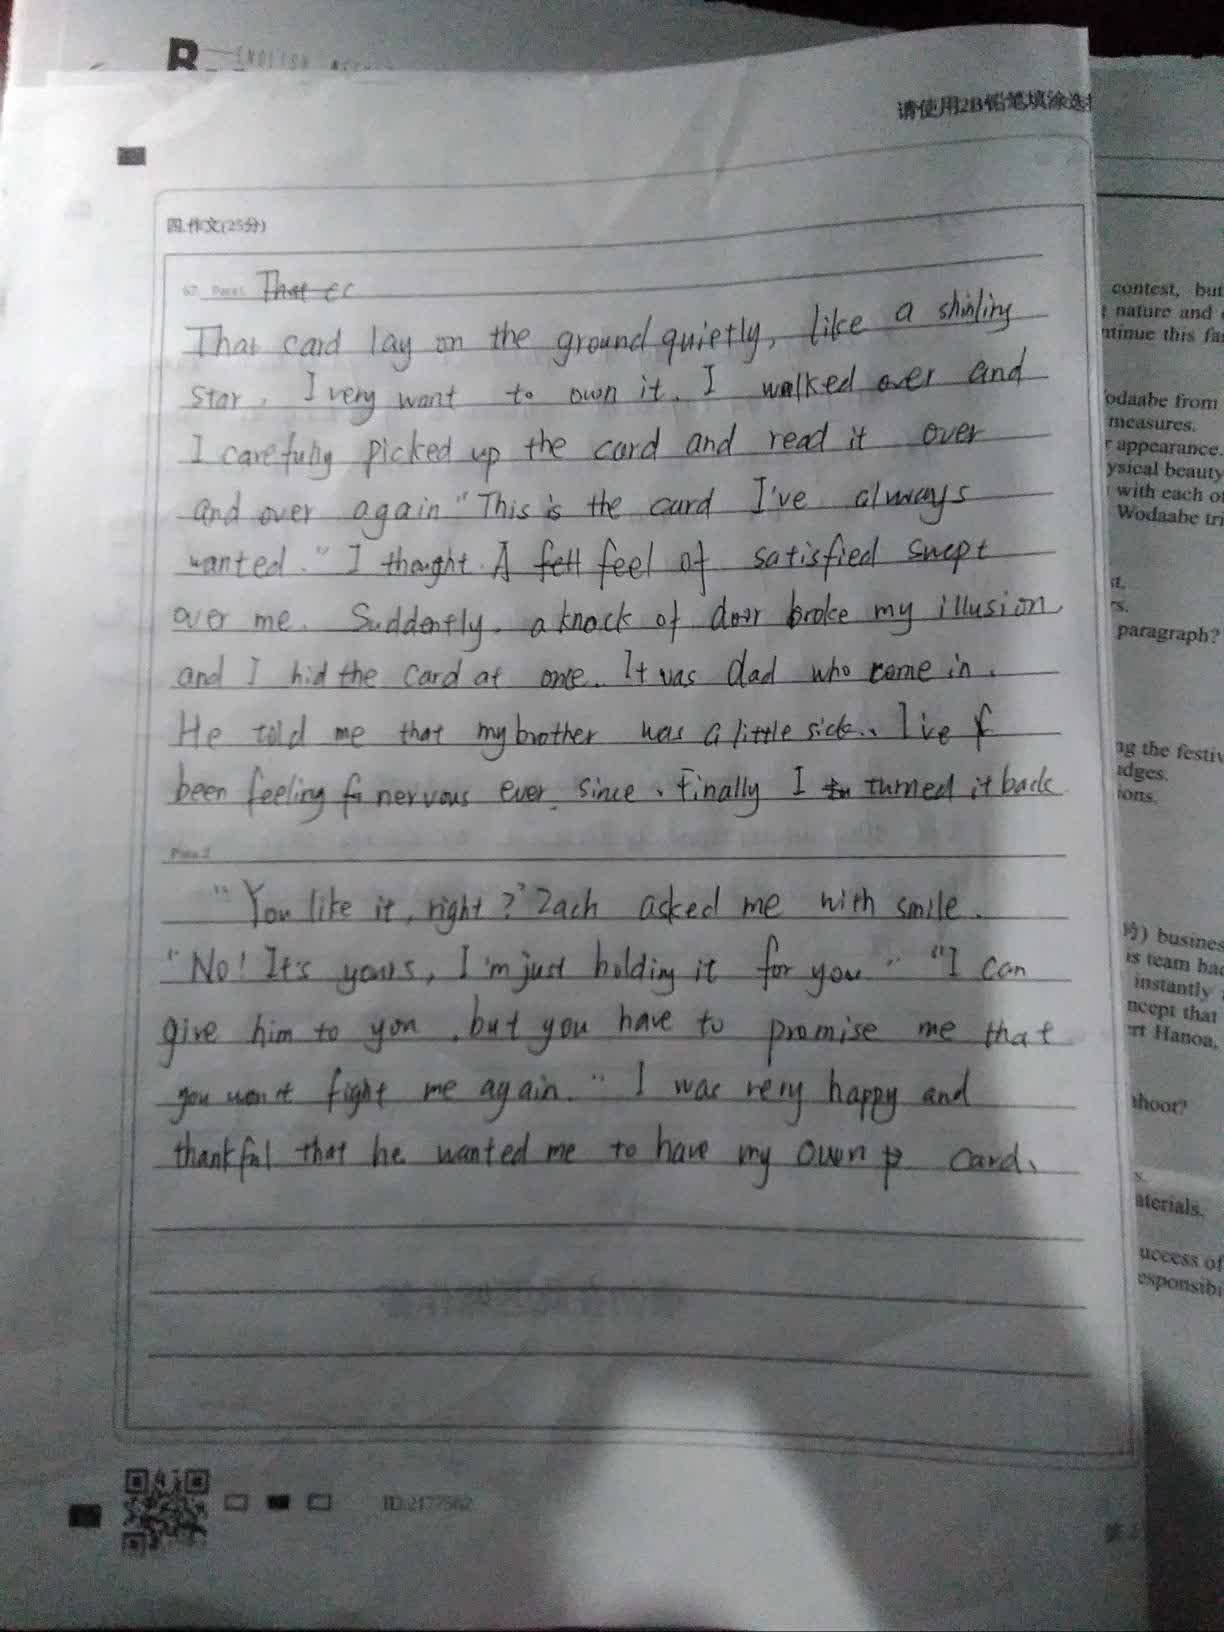 B
ENGLISH
请使用2B铅笔填涂选
四.作文(25分)
67. Para1 That cc
That card lay on the ground quietly, like a shinling
star. I very want to own it. I walked over and
I carefully picked up the card and read it over
and over again "This is the card I've always
wanted." I thought. A fett feel of satisfied swept
over me. Suddently, a knock of door broke my illusion,
and I hid the card at once. It was dad who come in.
He told me that my brother was a little sick. I've f
been feeling fn nervous ever since. Finally I tu turned it back
Para 2
"You like it, right?" Zach asked me with smile.
"No! It's yours, I'm just holding it for you." "I can
give him to you, but you have to promise me that
you won't fight me again." I was very happy and
thankful that he wanted me to have my own p card.
ID:2177562
contest, but
nature and
ntinue this fa
odaabe from
measures.
r appearance.
ysical beauty
with each o
Wodaabe tri
st.
rs.
paragraph?
ng the festiv
udges.
ions.
busines
is team bac
instantly
ncept that
ert Hanoa,
hoot?
s.
aterials.
uccess of
esponsibi